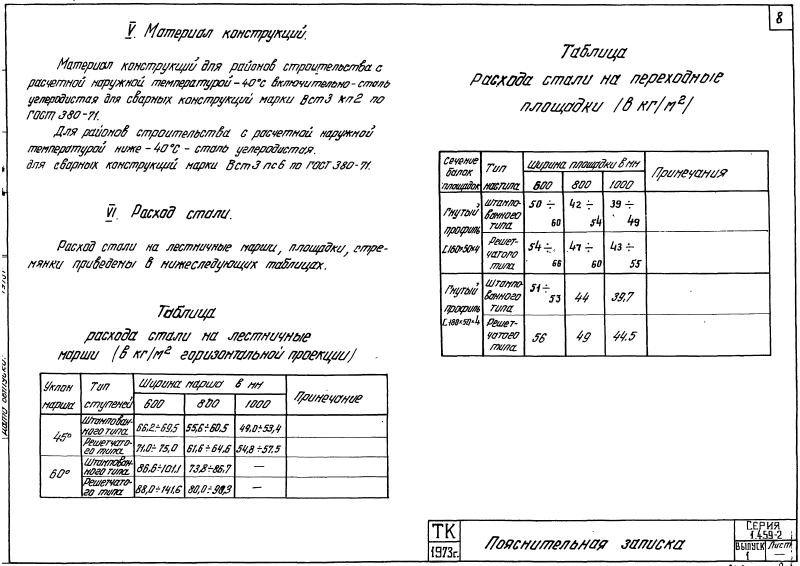 8
V. Материал конструкций.
Материал конструкций для районов строительства с
расчетной наружной температурой -40°С включительно-сталь
углеродистая для сварных конструкций марки Вст3 кп2 по
ГОСТ 380-71.
Для районов строительства с расчетной наружной
температурой ниже -40°С - сталь углеродистая.
для сварных конструкций марки Вст3 пс6 по ГОСТ 380-71.
VI. Расход стали.
Расход стали на лестничные марши, площадки, стре-
мянки приведены в нижеследующих таблицах.
Таблица
расхода стали на лестничные
марши /в кг/м² горизонтальной проекции/
Уклон марша | Тип ступеней | Ширина марша в мм | Примечание
600 | 800 | 1000
45° | Штампован-ного типа | 66,2÷69,5 | 55,6÷60,5 | 49,0÷53,4
Решетчато-го типа | 71,0÷75,0 | 61,6÷64,6 | 54,8÷57,5
60° | Штампован-ного типа | 86,6÷101,1 | 73,8÷86,7 | —
Решетчато-го типа | 88,0÷141,6 | 80,0÷98,3 | —
Таблица
Расхода стали на переходные
площадки /в кг/м²/
Сечение балок площадок | Тип настила | Ширина площадки в мм | Примечания
600 | 800 | 1000
Гнутый профиль С160×50×4 | Штампо-ванного типа | 50÷60 | 42÷54 | 39÷49
Решет-чатого типа | 54÷66 | 47÷60 | 43÷55
Гнутый профиль С180×50×4 | Штампо-ванного типа | 51÷53 | 44 | 39,7
Решет-чатого типа | 56 | 49 | 44.5
ТК
1973г.
Пояснительная записка
СЕРИЯ
1.459-2
ВЫПУСК Лист
1 —